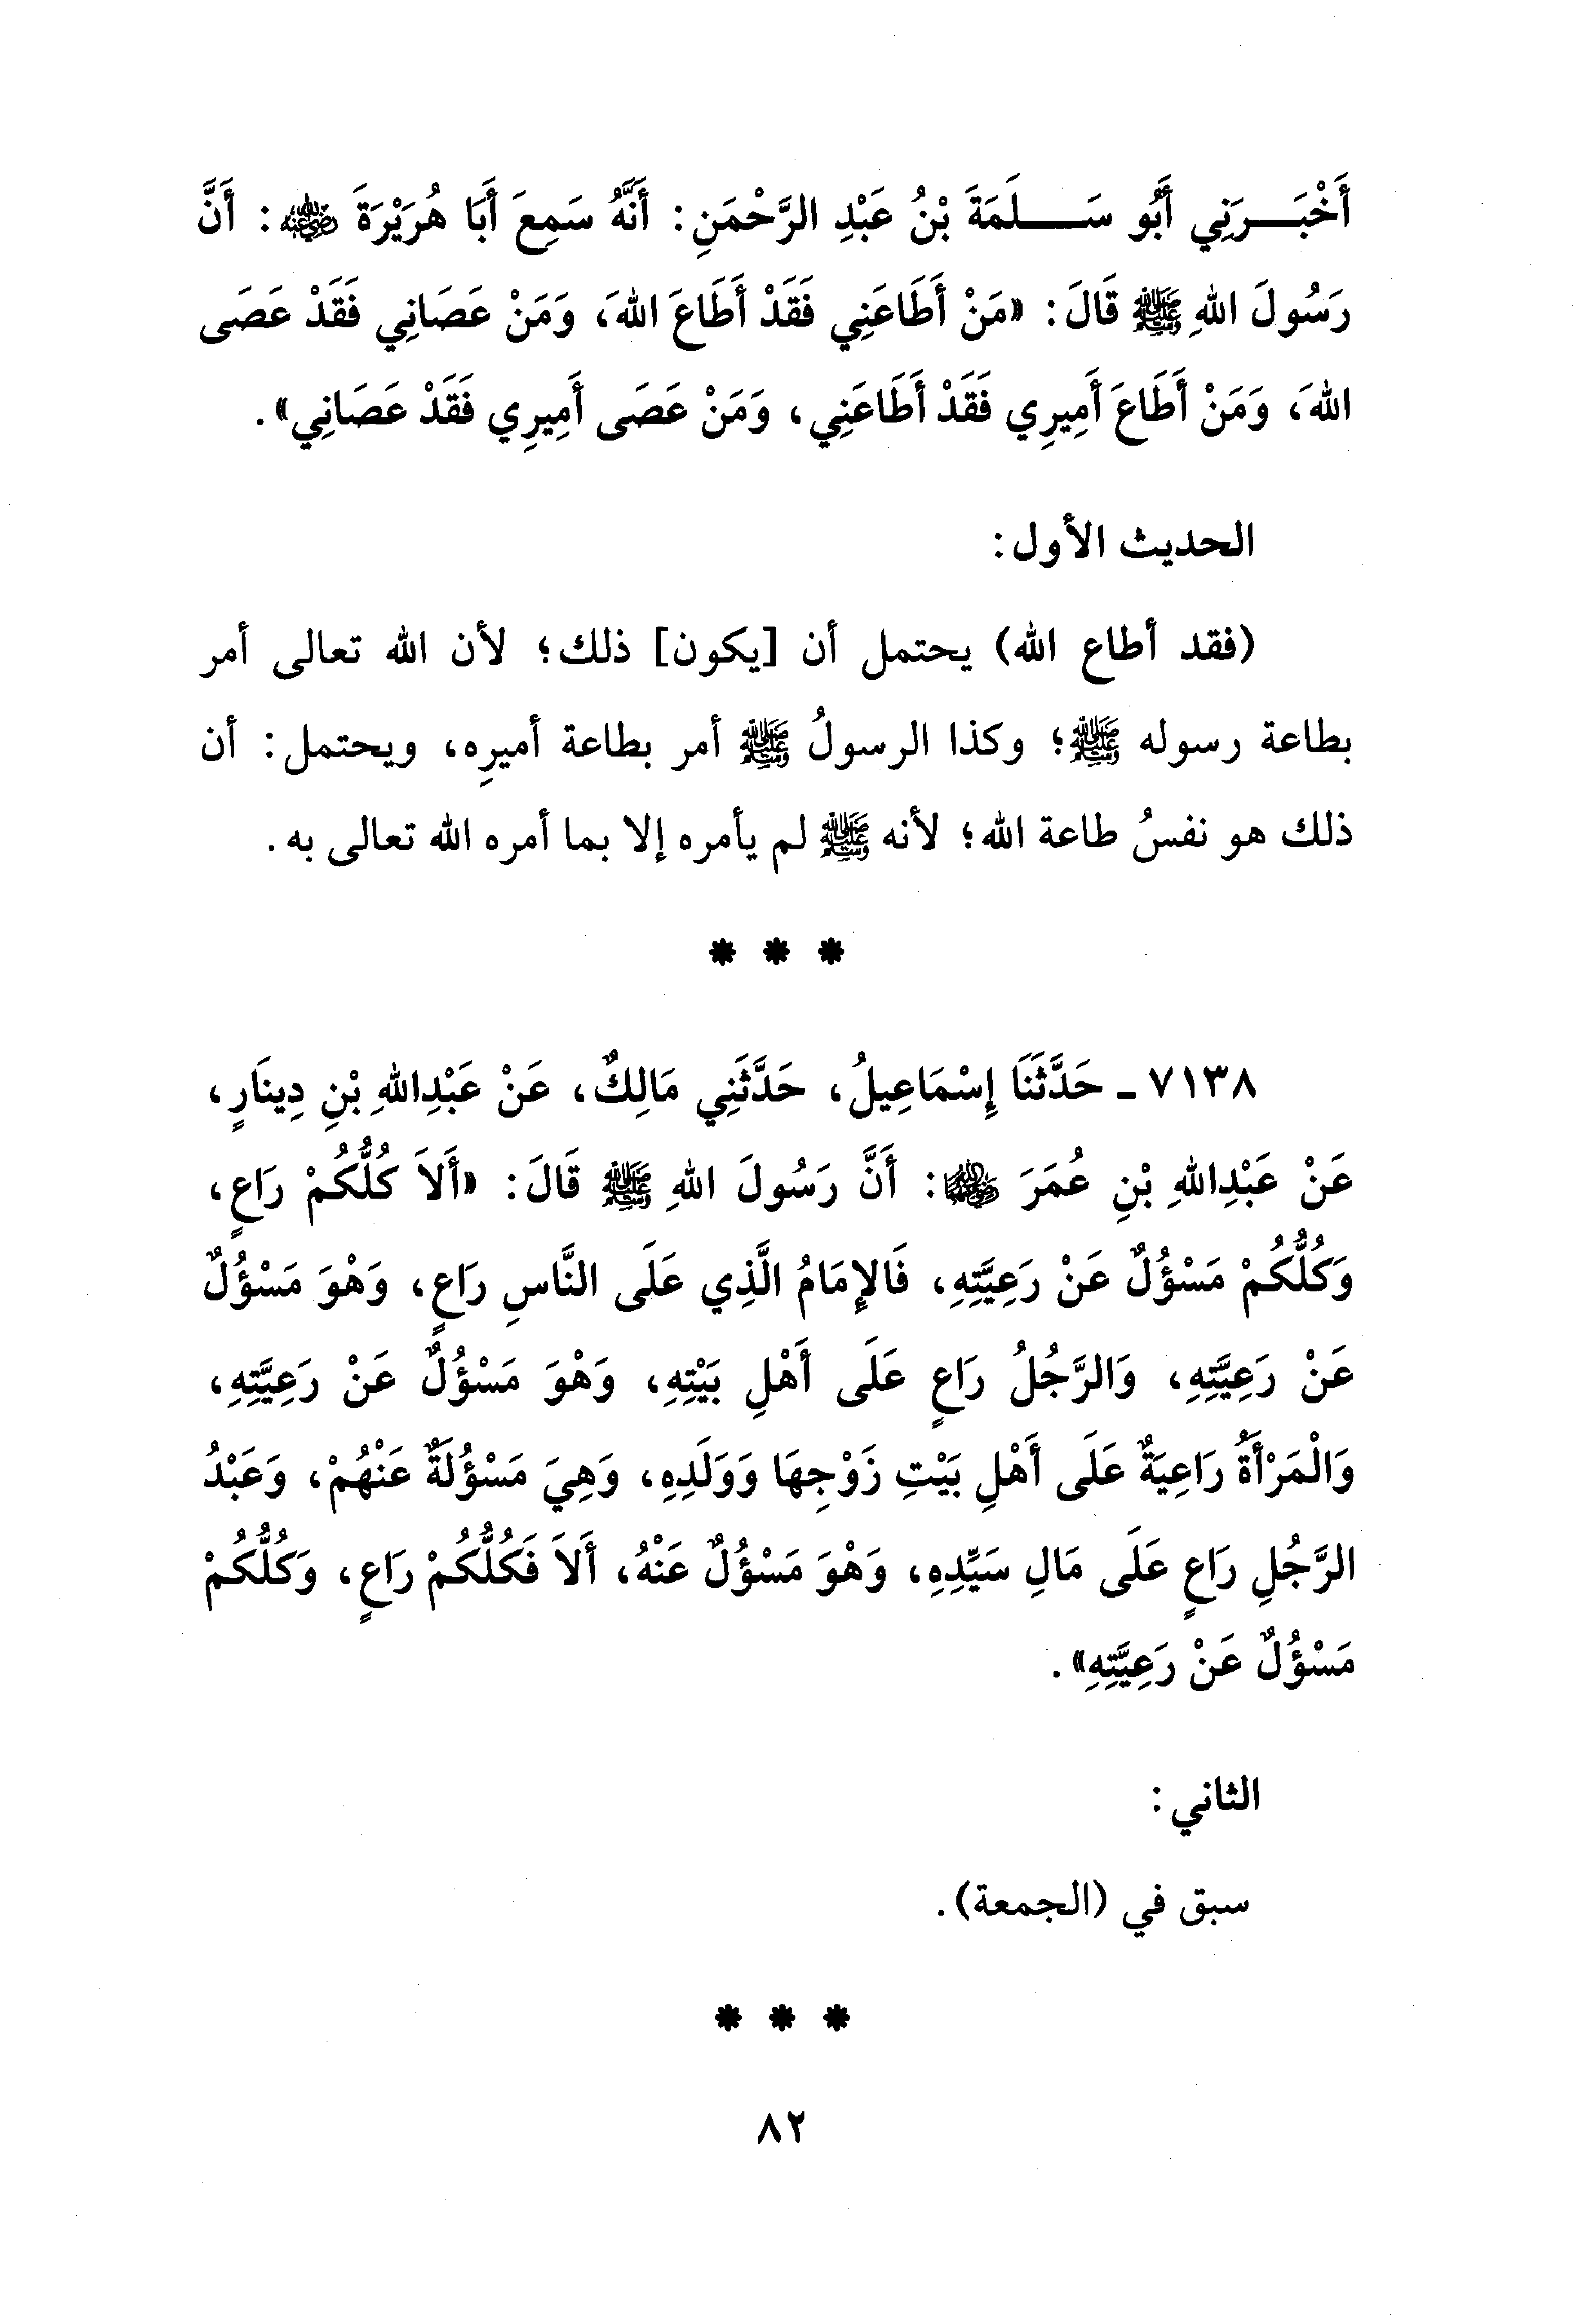 أَخْبَـــرَنِي أَبُو سَـــــلَمَةَ بْنُ عَبْدِ الرَّحْمَنِ: أَنَّهُ سَمِعَ أَبَا هُرَيْرَةَ رضي الله عنه: أَنَّ
رَسُولَ اللهِ ﷺ قَالَ: «مَنْ أَطَاعَنِي فَقَدْ أَطَاعَ اللهَ، وَمَنْ عَصَانِي فَقَدْ عَصَى
اللهَ، وَمَنْ أَطَاعَ أَمِيرِي فَقَدْ أَطَاعَنِي، وَمَنْ عَصَى أَمِيرِي فَقَدْ عَصَانِي».
الحديث الأول:
(فقد أطاع الله) يحتمل أن [يكون] ذلك؛ لأن الله تعالى أمر
بطاعة رسوله ﷺ؛ وكذا الرسولُ ﷺ أمر بطاعة أميرِه، ويحتمل: أن
ذلك هو نفسُ طاعة الله؛ لأنه ﷺ لم يأمره إلا بما أمره الله تعالى به.
* * *
٧١٣٨ ـ حَدَّثَنَا إِسْمَاعِيلُ، حَدَّثَنِي مَالِكٌ، عَنْ عَبْدِاللهِ بْنِ دِينَارٍ،
عَنْ عَبْدِاللهِ بْنِ عُمَرَ رضي الله عنهما: أَنَّ رَسُولَ اللهِ ﷺ قَالَ: «أَلاَ كُلُّكُمْ رَاعٍ،
وَكُلُّكُمْ مَسْؤُلٌ عَنْ رَعِيَّتِهِ، فَالإِمَامُ الَّذِي عَلَى النَّاسِ رَاعٍ، وَهْوَ مَسْؤُلٌ
عَنْ رَعِيَّتِهِ، وَالرَّجُلُ رَاعٍ عَلَى أَهْلِ بَيْتِهِ، وَهْوَ مَسْؤُلٌ عَنْ رَعِيَّتِهِ،
وَالْمَرْأَةُ رَاعِيَةٌ عَلَى أَهْلِ بَيْتِ زَوْجِهَا وَوَلَدِهِ، وَهِيَ مَسْؤُلَةٌ عَنْهُمْ، وَعَبْدُ
الرَّجُلِ رَاعٍ عَلَى مَالِ سَيِّدِهِ، وَهْوَ مَسْؤُلٌ عَنْهُ، أَلاَ فَكُلُّكُمْ رَاعٍ، وَكُلُّكُمْ
مَسْؤُلٌ عَنْ رَعِيَّتِهِ».
الثاني:
سبق في (الجمعة).
* * *
٨٢